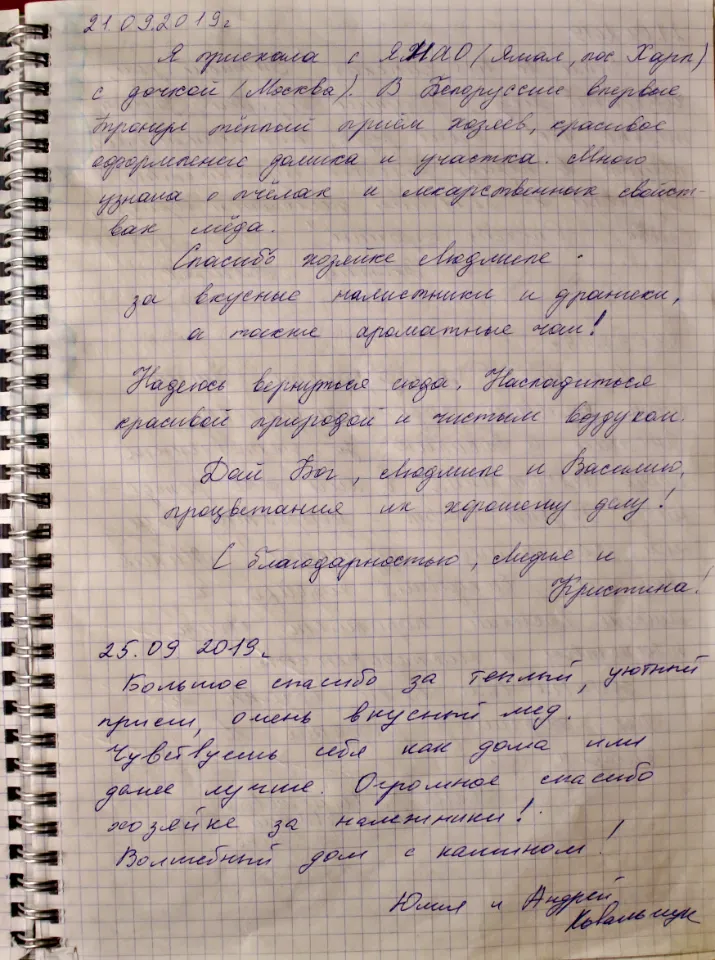 21.09.2019г
Я приехала с ЯНАО (Ямал, пос Харп)
с дочкой (Москва). В Белоруссие впервые
Тронул тёплый приём хозяев, красивое
оформление домика и участка. Много
узнала о пчёлах и лекарственных свойст-
вах мёда.
Спасибо хозяйке Людмиле
за вкусные налистники и драники,
а также ароматные чаи!
Надеюсь вернуться сюда. Насладиться
красивой природой и чистым воздухом.
Дай Бог, Людмиле и Василию,
процветания их хорошему делу!
С благодарностью, Лидия и
Кристина!
25.09 2019г
Большое спасибо за теплый, уютный
прием, очень вкусный мед.
Чувствуешь себя как дома или
даже лучше. Огромное спасибо
хозяйке за налистники!
Волшебный дом с камином!
Юлия и Андрей
Ковальчук